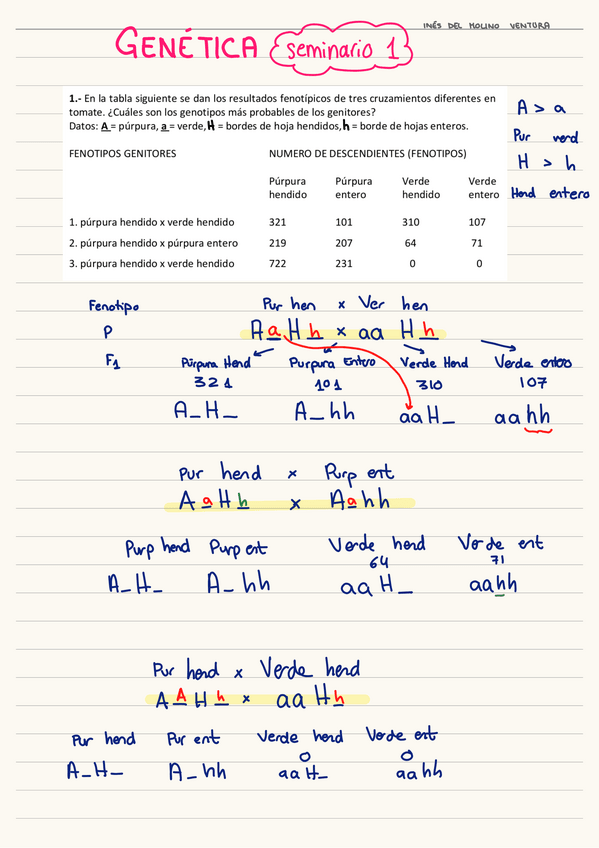 INÉS DEL MOLINO VENTURA
GENÉTICA seminario 1
1.- En la tabla siguiente se dan los resultados fenotípicos de tres cruzamientos diferentes en
tomate. ¿Cuáles son los genotipos más probables de los genitores?
Datos: A = púrpura, a = verde, H = bordes de hoja hendidos, h = borde de hojas enteros.
A > a
Pur verd
H > h
Hend entero
FENOTIPOS GENITORES NUMERO DE DESCENDIENTES (FENOTIPOS)
Púrpura Púrpura Verde Verde
hendido entero hendido entero
1. púrpura hendido x verde hendido 321 101 310 107
2. púrpura hendido x púrpura entero 219 207 64 71
3. púrpura hendido x verde hendido 722 231 0 0
Fenotipo Pur hen x Ver hen
P AaHh x aa Hh
F1 Púrpura Hend Purpura Entero Verde Hend Verde entero
321 101 310 107
A_H_ A_hh aaH_ aahh
Pur hend x Purp ent
AaHh x Aahh
Purp hend Purp ent Verde hend Verde ent
64 71
A_H_ A_hh aaH_ aahh
Pur hend x Verde hend
AAHh x aaHh
Pur hend Pur ent Verde hend Verde ent
0 0
A_H_ A_hh aaH_ aahh